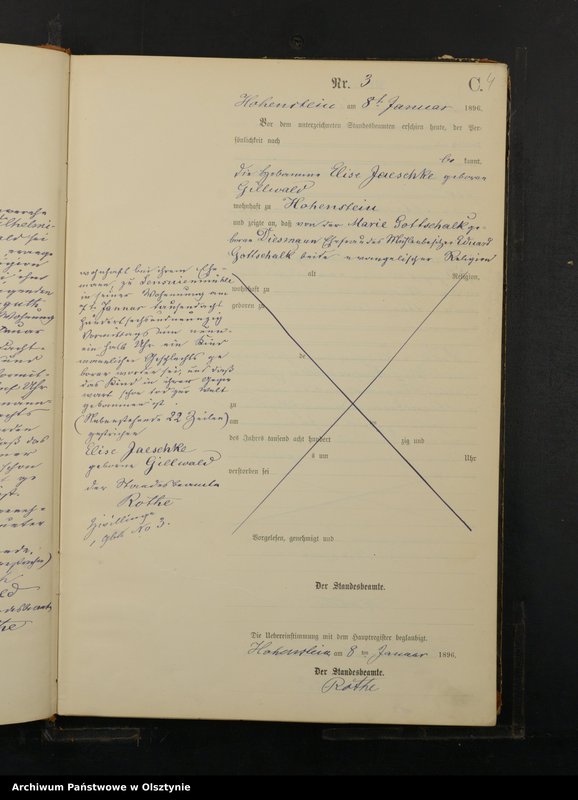 Nr. 3
C. 4
Hohenstein am 8t Januar 1896.
Vor dem unterzeichneten Standesbeamten erschien heute, der Per-
sönlichkeit nach
be kannt,
die Hebamme Elise Jaeschke geborne
Gillwald
wohnhaft zu Hohenstein
und zeigte an, daß von der Marie Gottschalk ge-
borne Diesmann Ehefrau des Mühlenbesitzer Eduard
Gottschalk beide evangelischer Religion
alt Religion,
wohnhaft zu
geboren zu
de
zu
am
des Jahres tausend acht hundert zig und
s um Uhr
verstorben sei
wohnhaft bei ihrem Ehe-
mann, zu
in seiner Wohnung am
7t Januar tausendacht
hundertsechsundneunzig
Vormittags um neun-
ein halb Uhr ein Kind
männlichen Geschlechts ge
boren worden sei, und daß
das Kind in ihrer Gegen
wart schon tod zur Welt
gekommen ist.
(Nebenstehende 22 Zeilen)
gestrichen
Elise Jaeschke
geborene Gillwald
der Standesbeamte
Rothe
Zwillinge
No 3.
Vorgelesen, genehmigt und
Der Standesbeamte.
Die Uebereinstimmung mit dem Hauptregister beglaubigt.
Hohenstein am 8 ten Januar 1896.
Der Standesbeamte.
Rothe
Archiwum Państwowe w Olsztynie